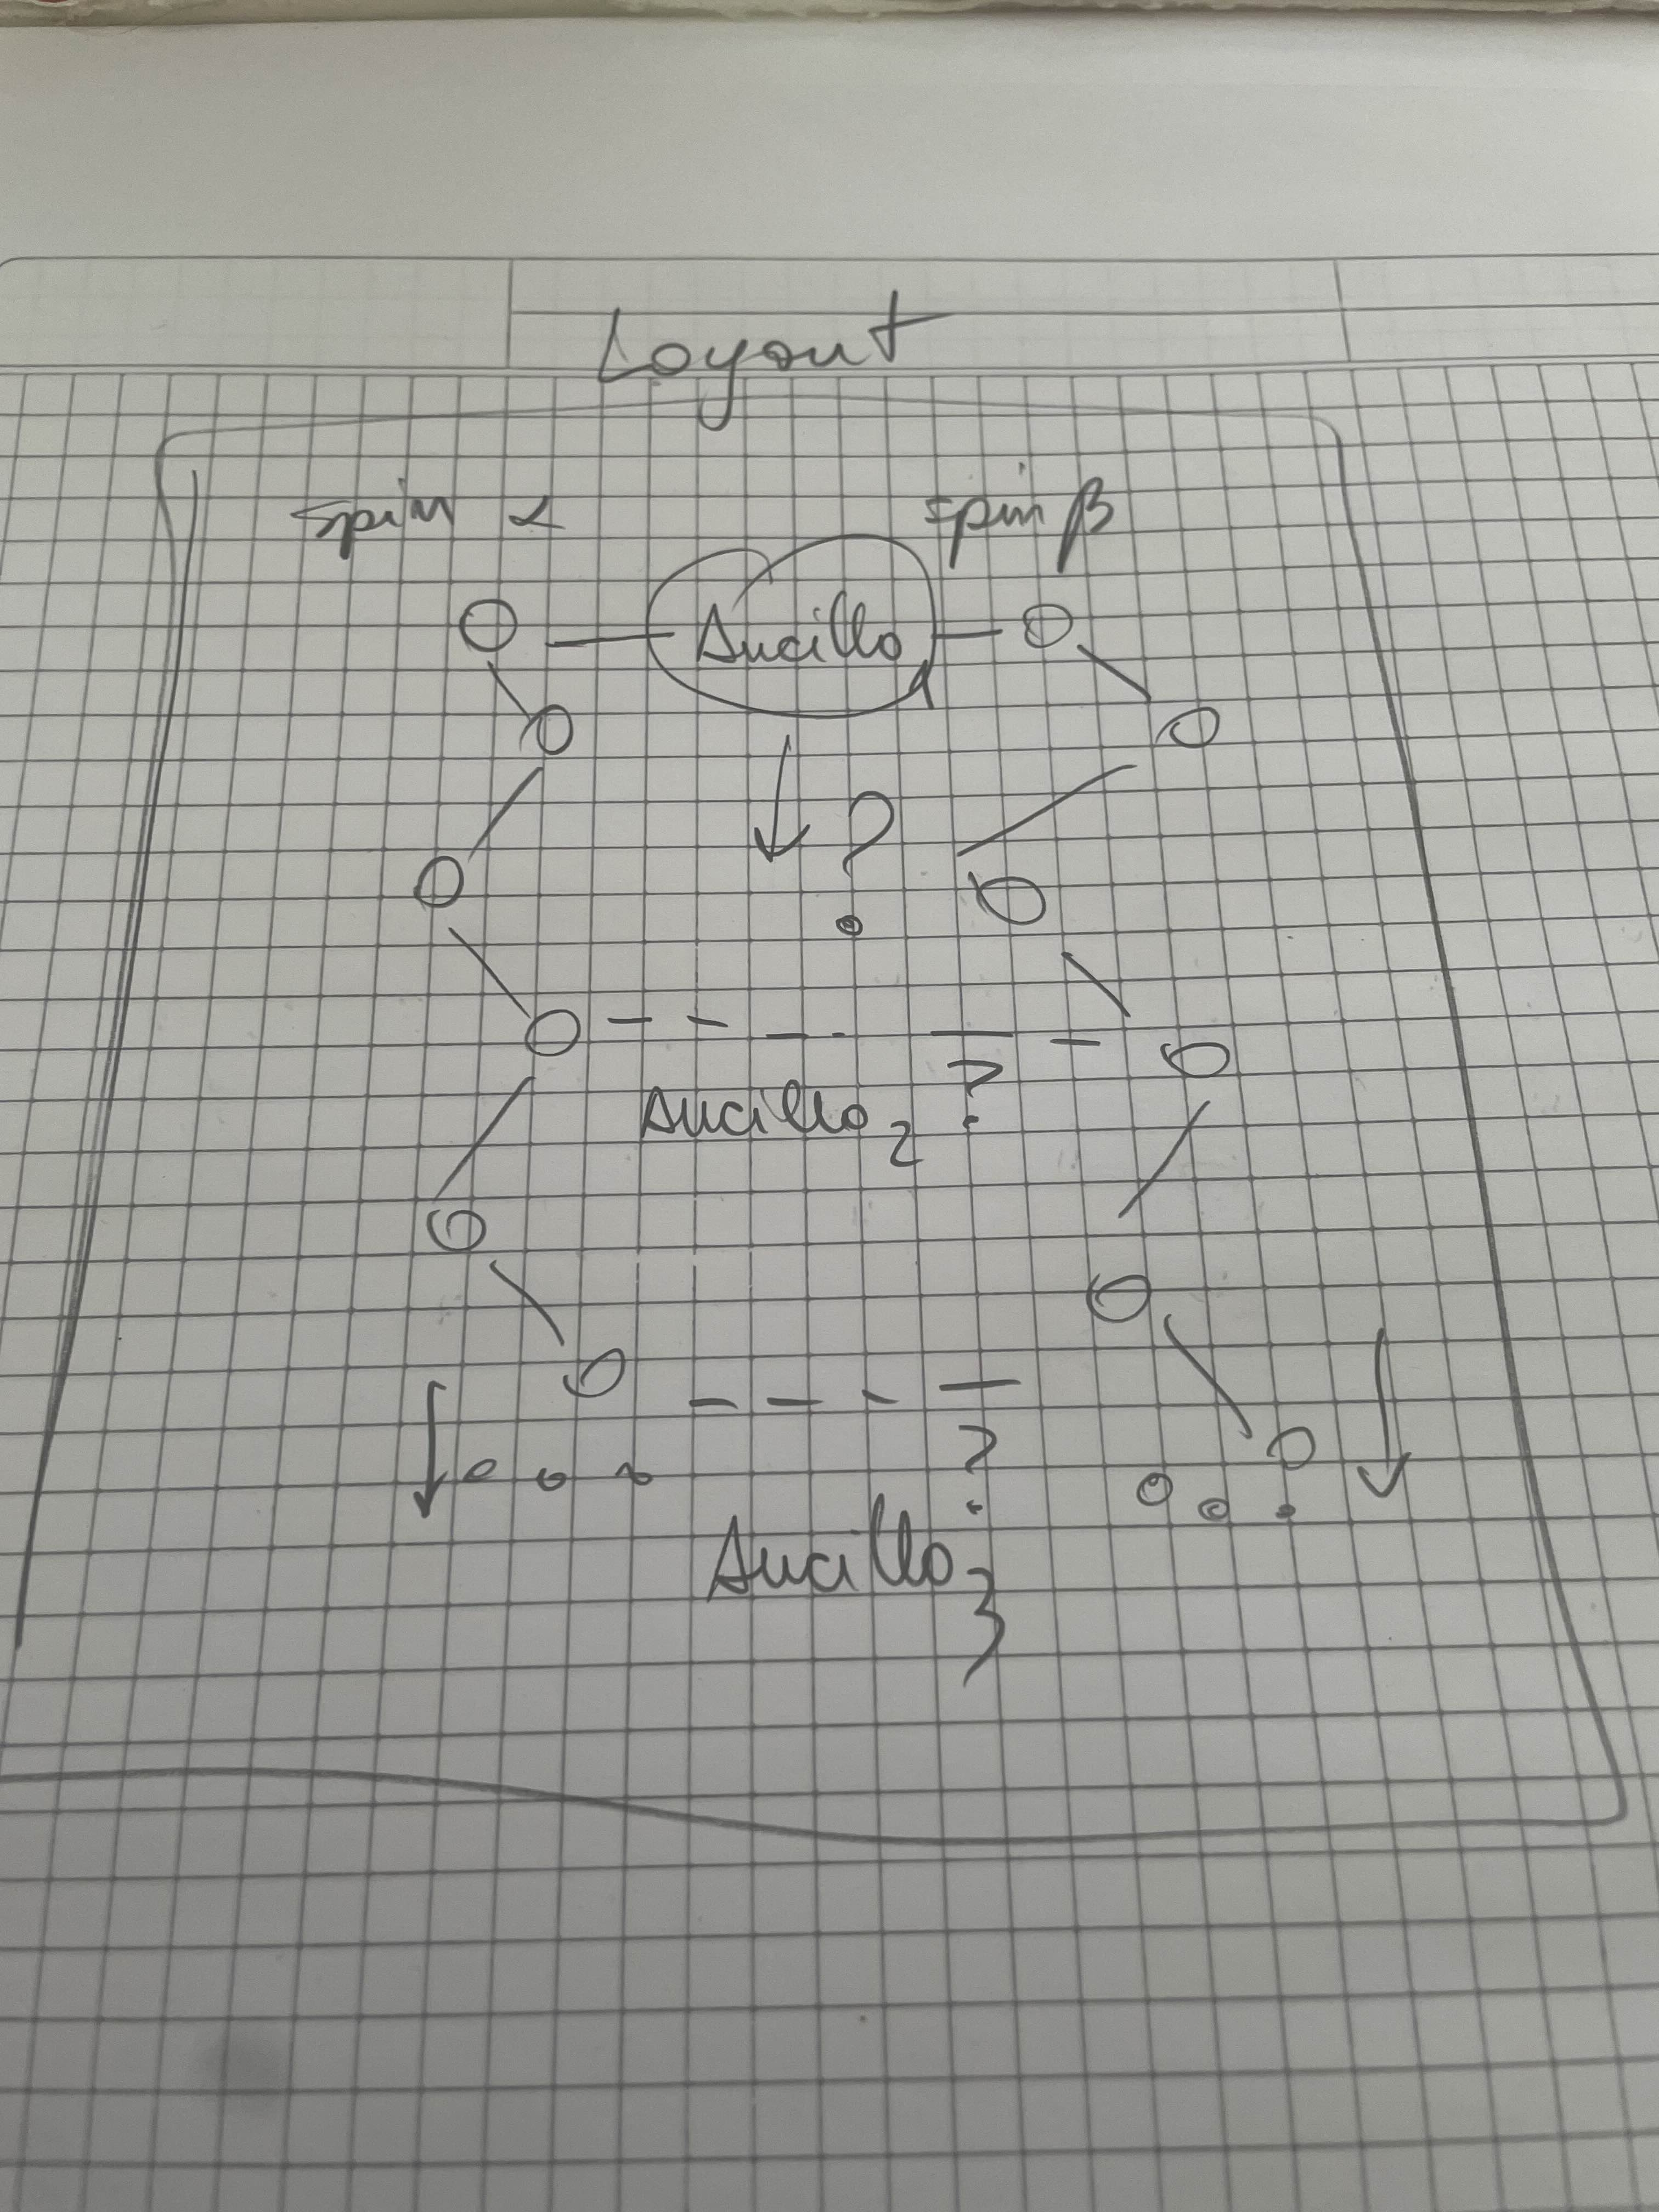 Layout
spin α spin β
Ancilla 1
?
?
Ancilla 2
?
Ancilla 3